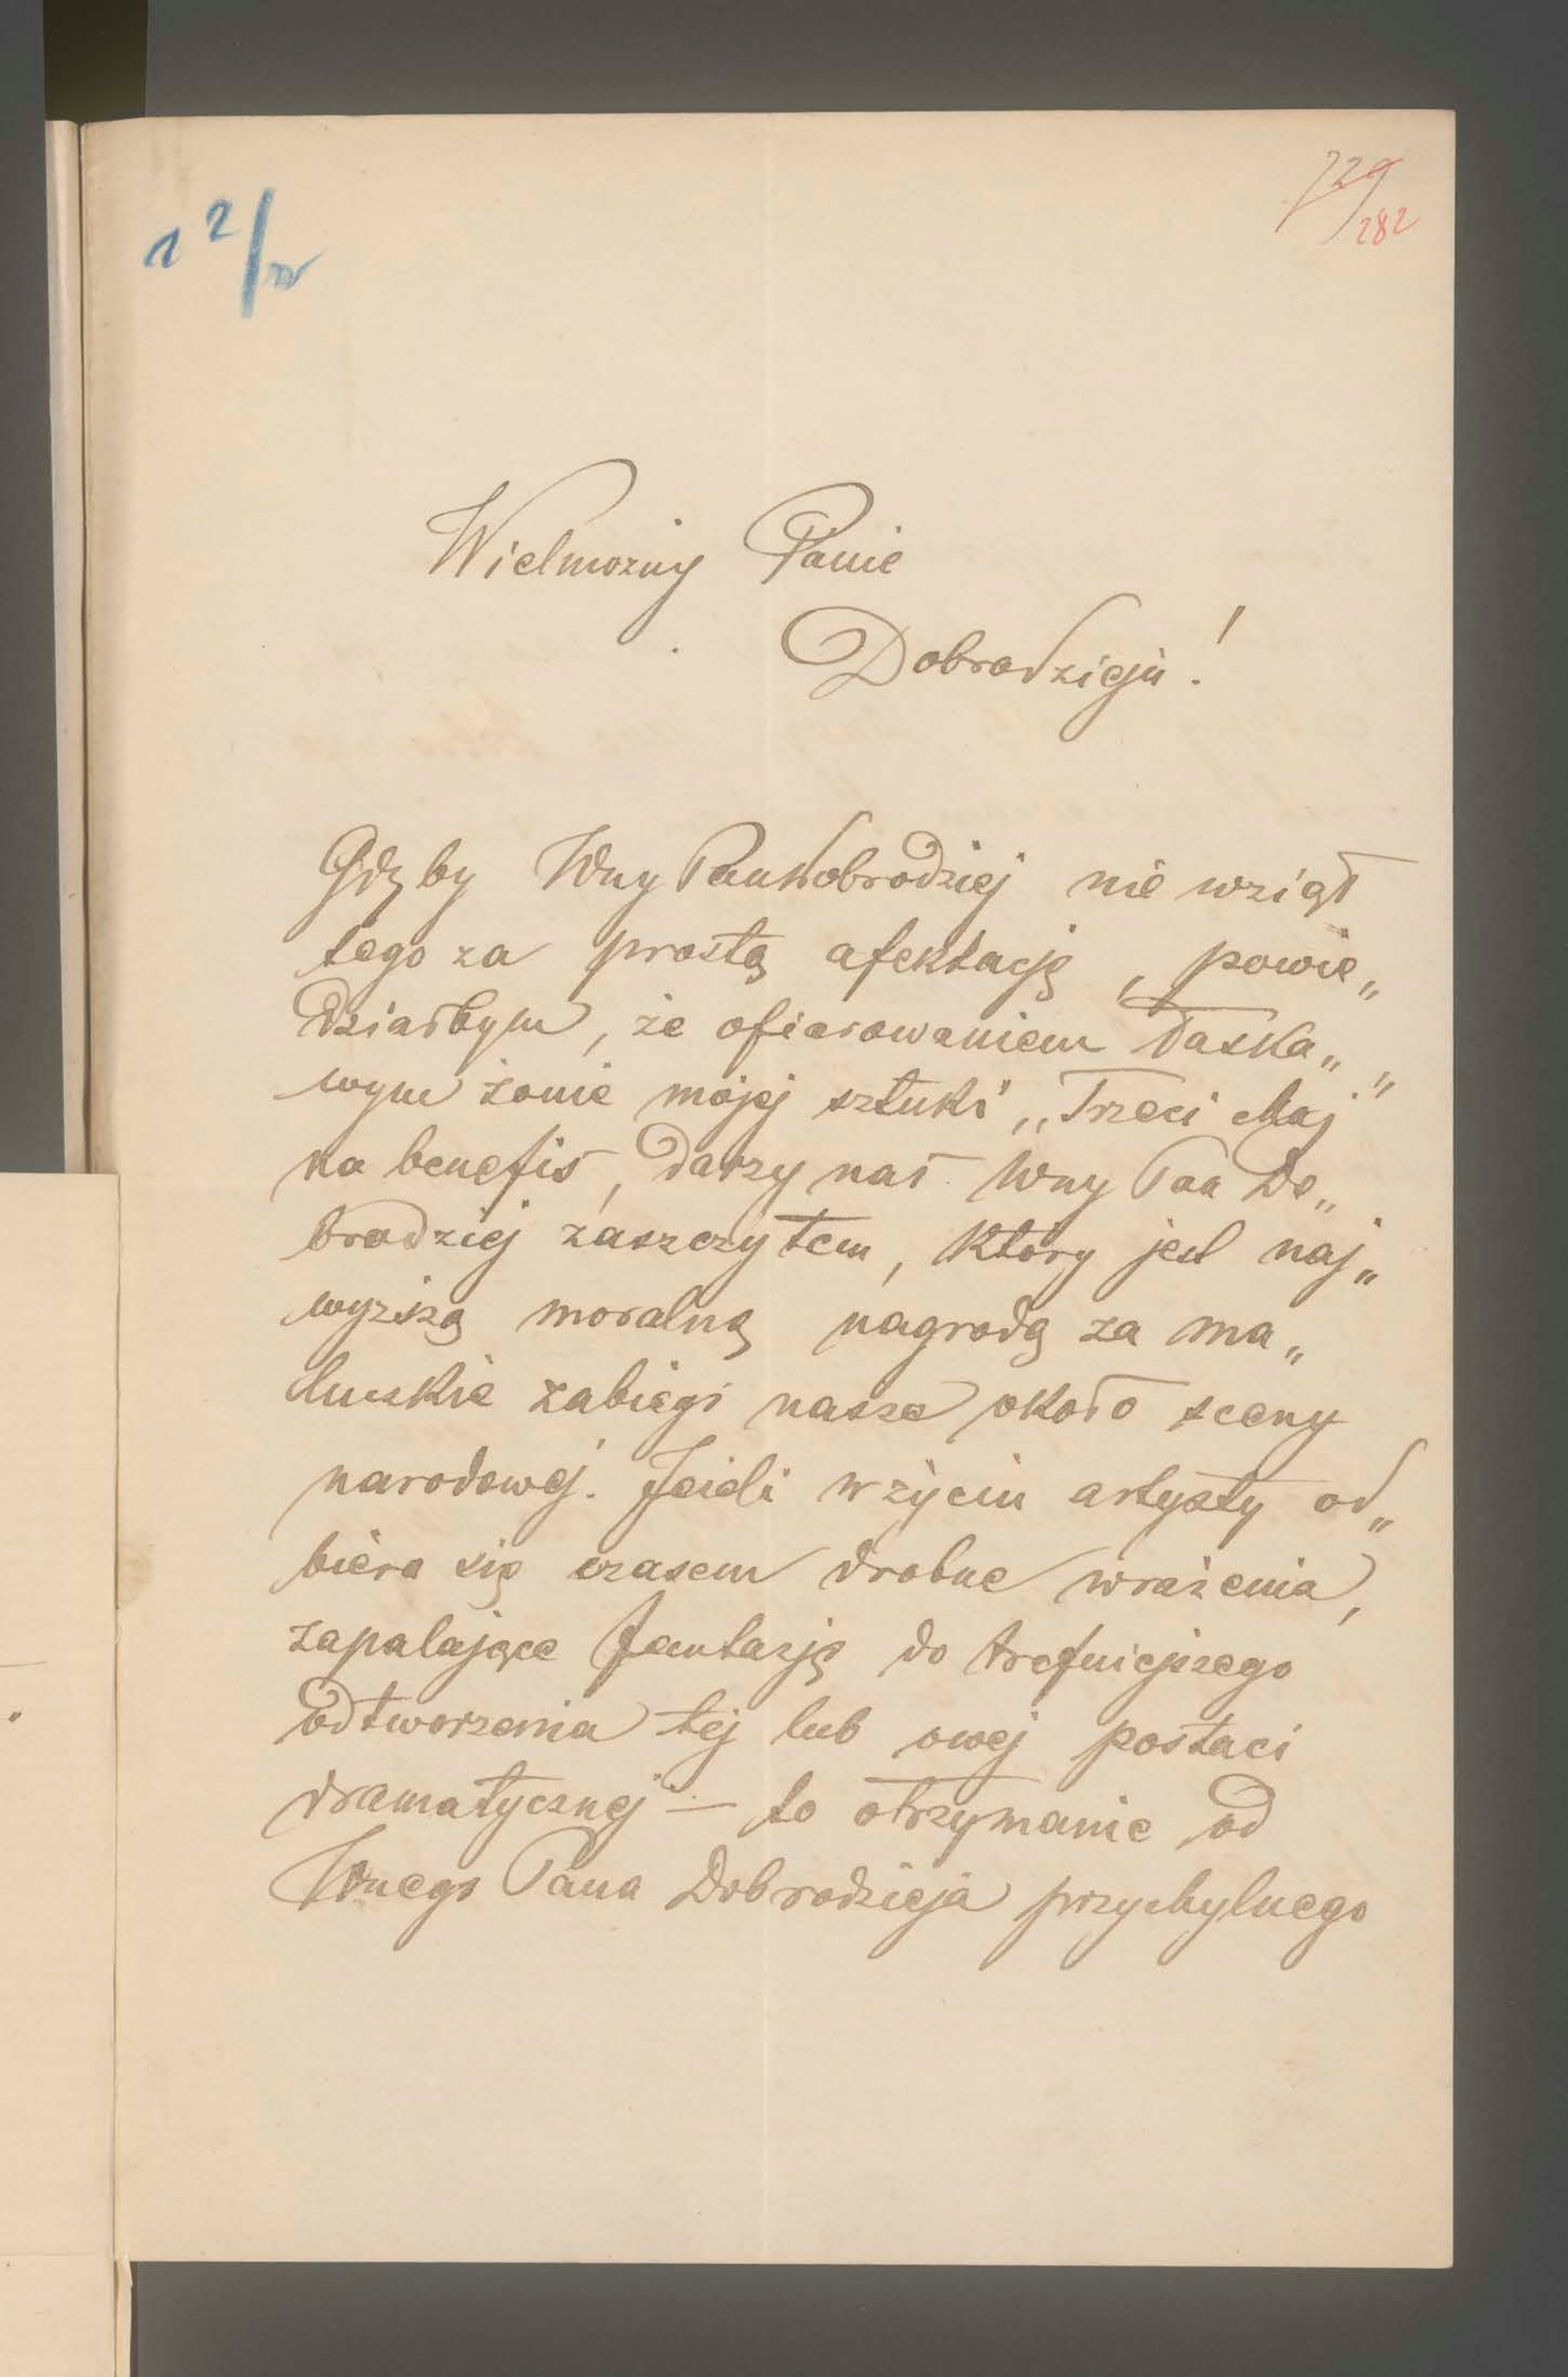 12/
729
282
Wielmożny Panie
Dobrodzieju!
Gdyby Wny Pan Dobrodziej nie wziął
tego za prostą afektację, powie„
działbym, że ofiarowaniem łaska„
wym żonie mojej sztuki „Trzeci Maj”
na benefis, darzy nas Wny Pan Do„
brodziej zaszczytem, który jest naj„
wyższą moralną nagrodą za ma„
luczkie zabiegi nasze około sceny
narodowej. Jeżeli w życiu artysty od„
biera się czasem drobne wrażenia,
zapalające fantazję do trafniejszego
odtworzenia tej lub owej postaci
dramatycznej — to otrzymanie od
Wnego Pana Dobrodzieja przychylnego